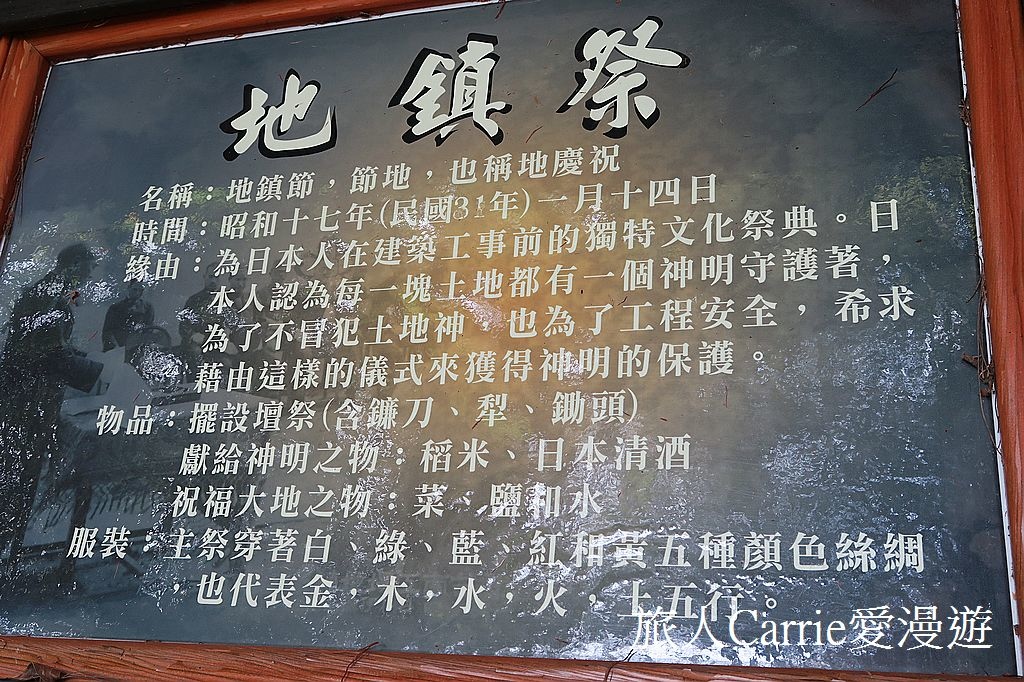 地鎮祭
名稱：地鎮節，節地，也稱地慶祝
時間：昭和十七年(民國31年)一月十四日
緣由：為日本人在建築工事前的獨特文化祭典。日
本人認為每一塊土地都有一個神明守護著，
為了不冒犯土地神，也為了工程安全，希求
藉由這樣的儀式來獲得神明的保護。
物品：擺設壇祭(含鐮刀、犁、鋤頭)
獻給神明之物：稻米、日本清酒
祝福大地之物：菜、鹽和水
服裝：主祭穿著白、綠、藍、紅和黃五種顏色絲綢
，也代表金，木，水，火，土五行。
旅人Carrie愛漫遊